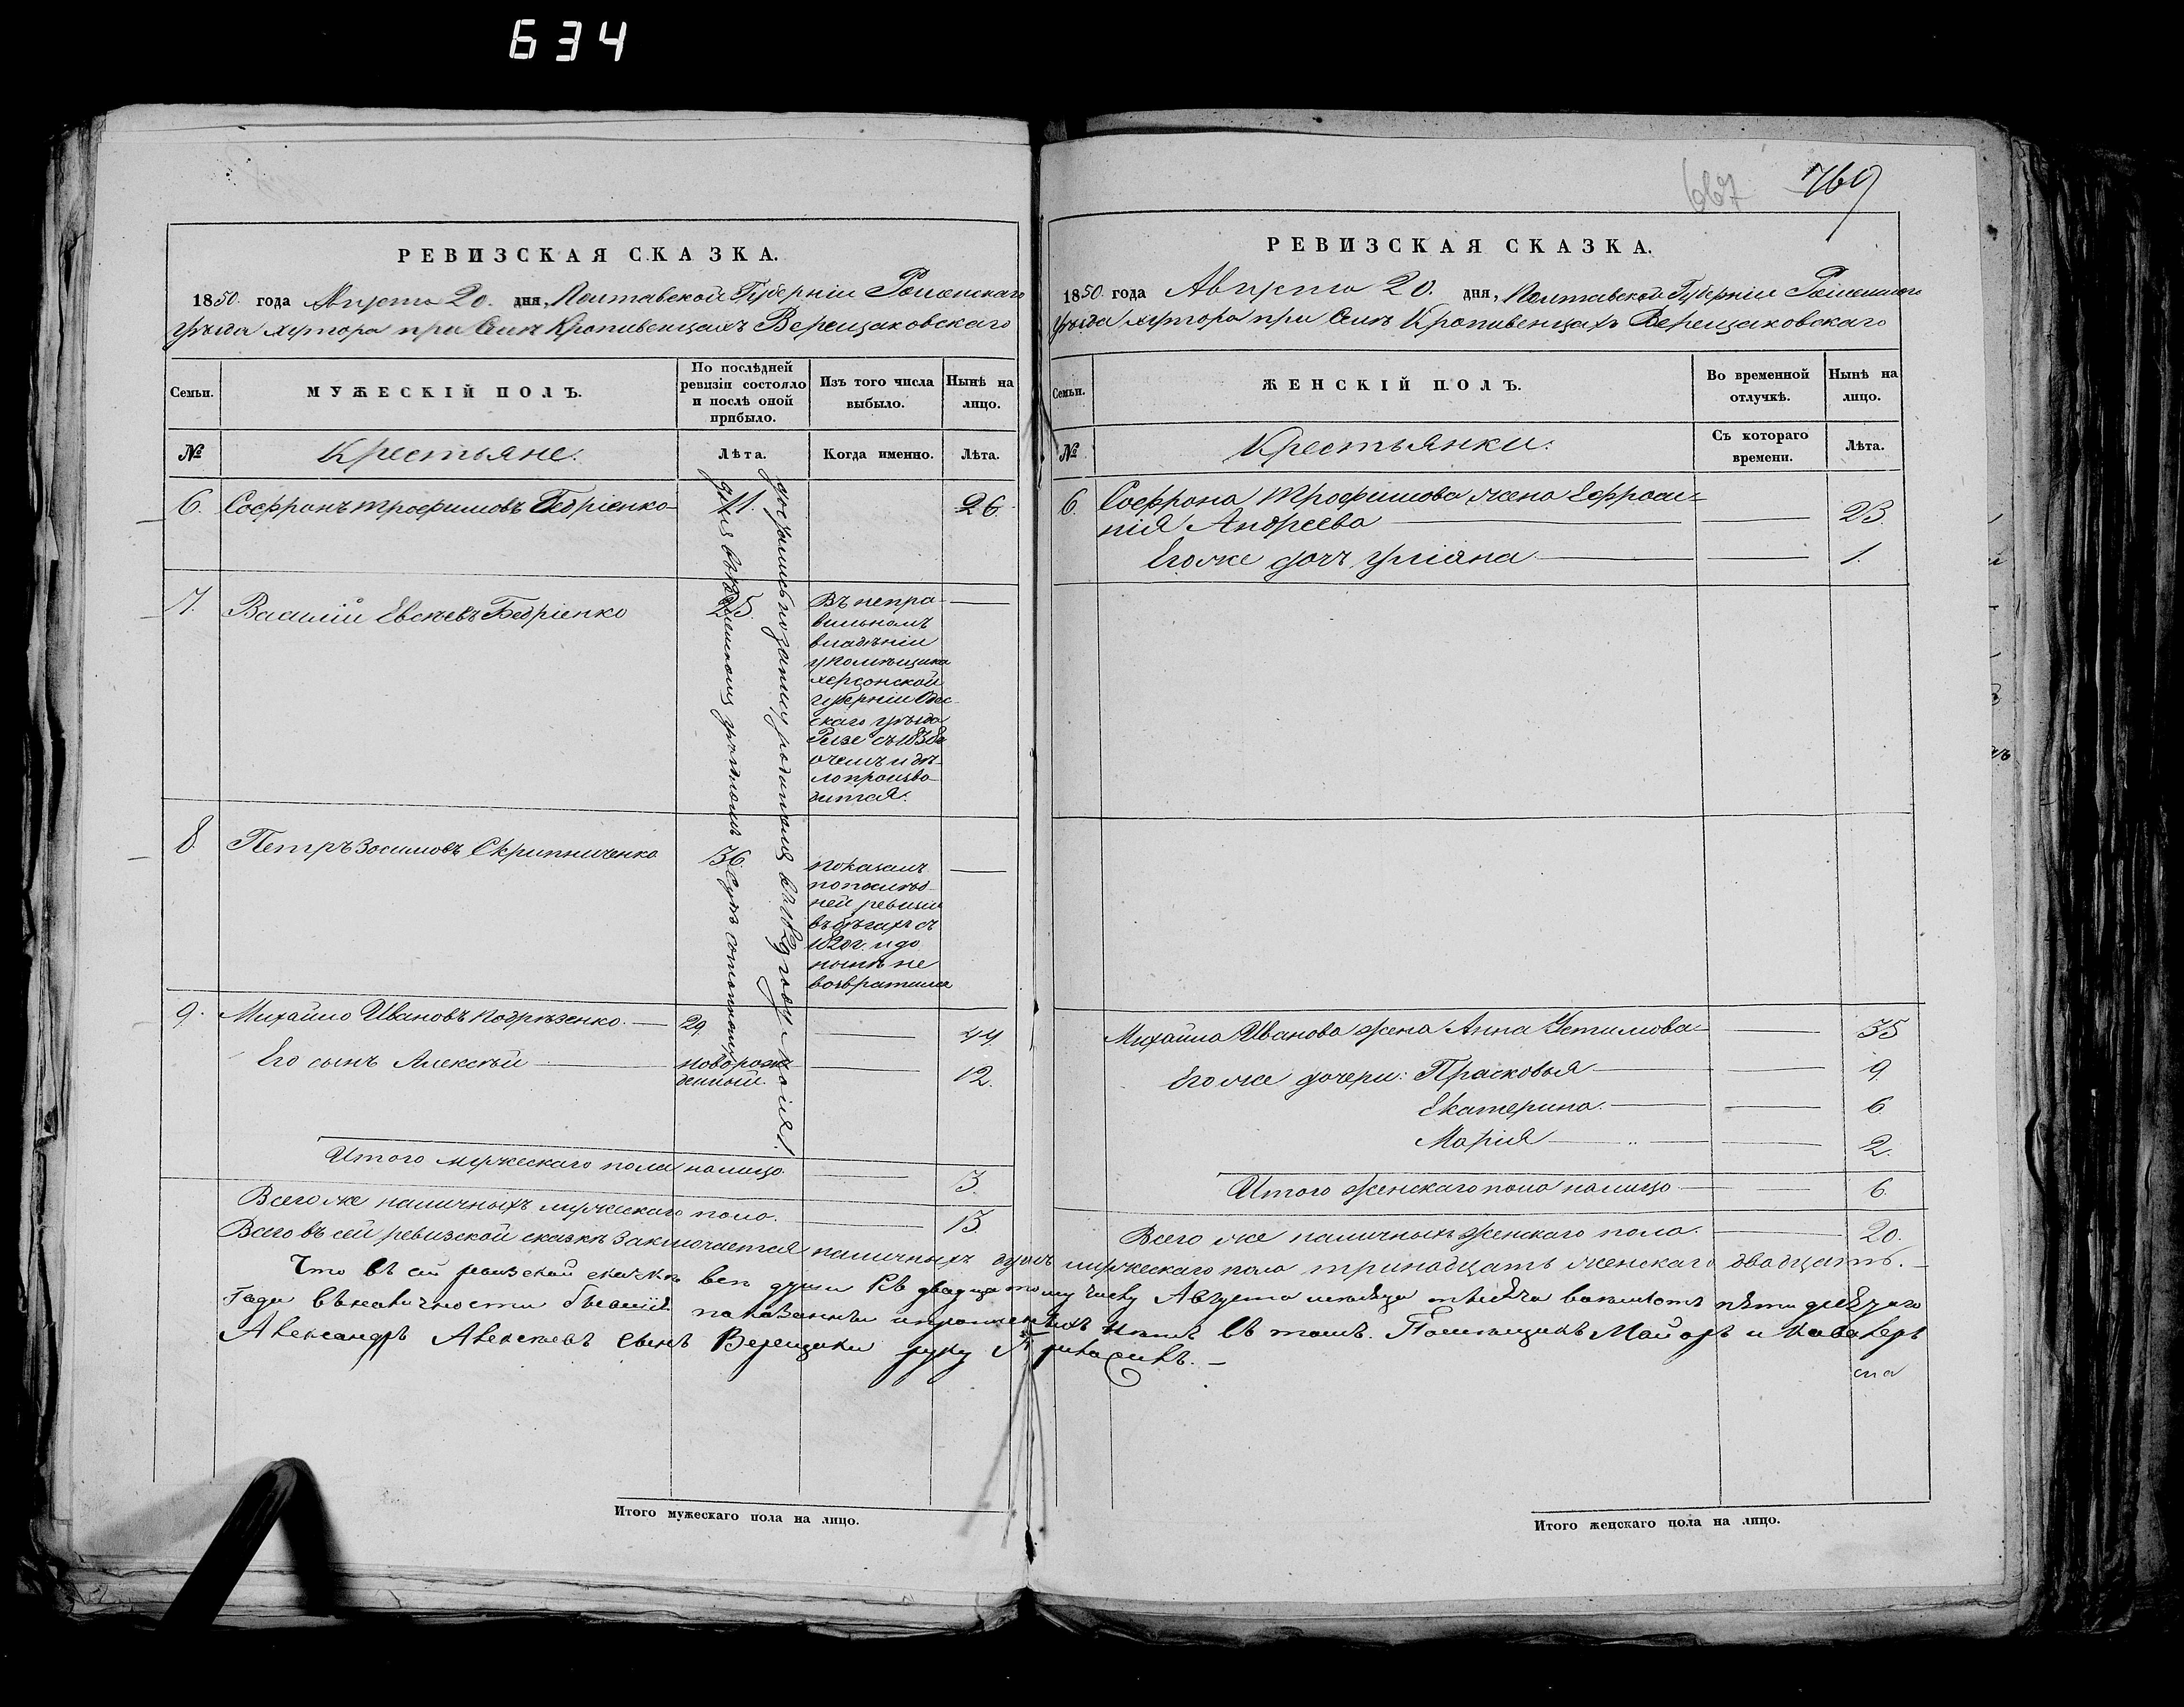 634
РЕВИЗСКАЯ СКАЗКА.
1850. года Августа 20. дня, Полтавской Губерніи Роменскаго
уѣзда хутора при Селѣ Кропивенцахъ Верещаковскаго
Семьи.
МУЖЕСКІЙ ПОЛЪ.
По послѣдней
ревизіи состояло
и послѣ оной
прибыло.
Изъ того числа
выбыло.
Нынѣ на
лицо.
№
Крестьяне.
Лѣта.
Когда именно.
Лѣта.
6. Софронъ Трофимовъ Бедріенко 11. 26.
7. Василій Бедріенко 25.
Въ непра
вильномъ
владѣніи
у помѣщика
Херсонской
губерніи
скаго уѣзда
съ 1838
о чемъ и дѣ
ло произво
дится.
8. Петръ Зосимовъ Скрипниченко 36
показанъ
по послѣд
ней ревизіи
въ бѣгахъ съ
1820 г. и до
нынѣ не
возвратился
9. Михайло Ивановъ Подрѣзенко. 29 44.
Его сынъ Алексѣй новорож
денный. 12.
Итого мужескаго пола налицо. 3.
Всего же наличныхъ мужескаго пола. 13.
Всего въ сей ревизской сказкѣ заключается наличныхъ душъ мужескаго пола тринадцать женскаго двадцать.
Что въ сей ревизской сказкѣ все души къ двадцатому числу Августа мѣсяца тысяча восемьсотъ пятидесятаго
Года въ наличности бывшія показанны и прописныхъ нѣтъ въ томъ. Помѣщикъ Майоръ и Кавалеръ
Александръ Алексѣевъ сынъ Верещака руку приложилъ.
Итого мужескаго пола на лицо.
667 769
РЕВИЗСКАЯ СКАЗКА.
1850. года Августа 20. дня, Полтавской Губерніи Роменскаго
уѣзда хутора при Селѣ Кропивенцахъ Верещаковскаго
Семьи.
ЖЕНСКІЙ ПОЛЪ.
Во временной
отлучкѣ.
Нынѣ на
лицо.
№
Крестьянки.
Съ котораго
времени.
Лѣта.
6. Софрона Трофимова жена Ефроси=
нія Андреева 23.
Его же дочь Уліяна 1.
Михайла Иванова жена Анна Устимова 35
Его же дочери: Прасковья 9.
Екатерина. 6
Марія 2.
Итого женскаго пола налицо 6.
Всего же наличныхъ женскаго пола. 20.
Итого женскаго пола на лицо.